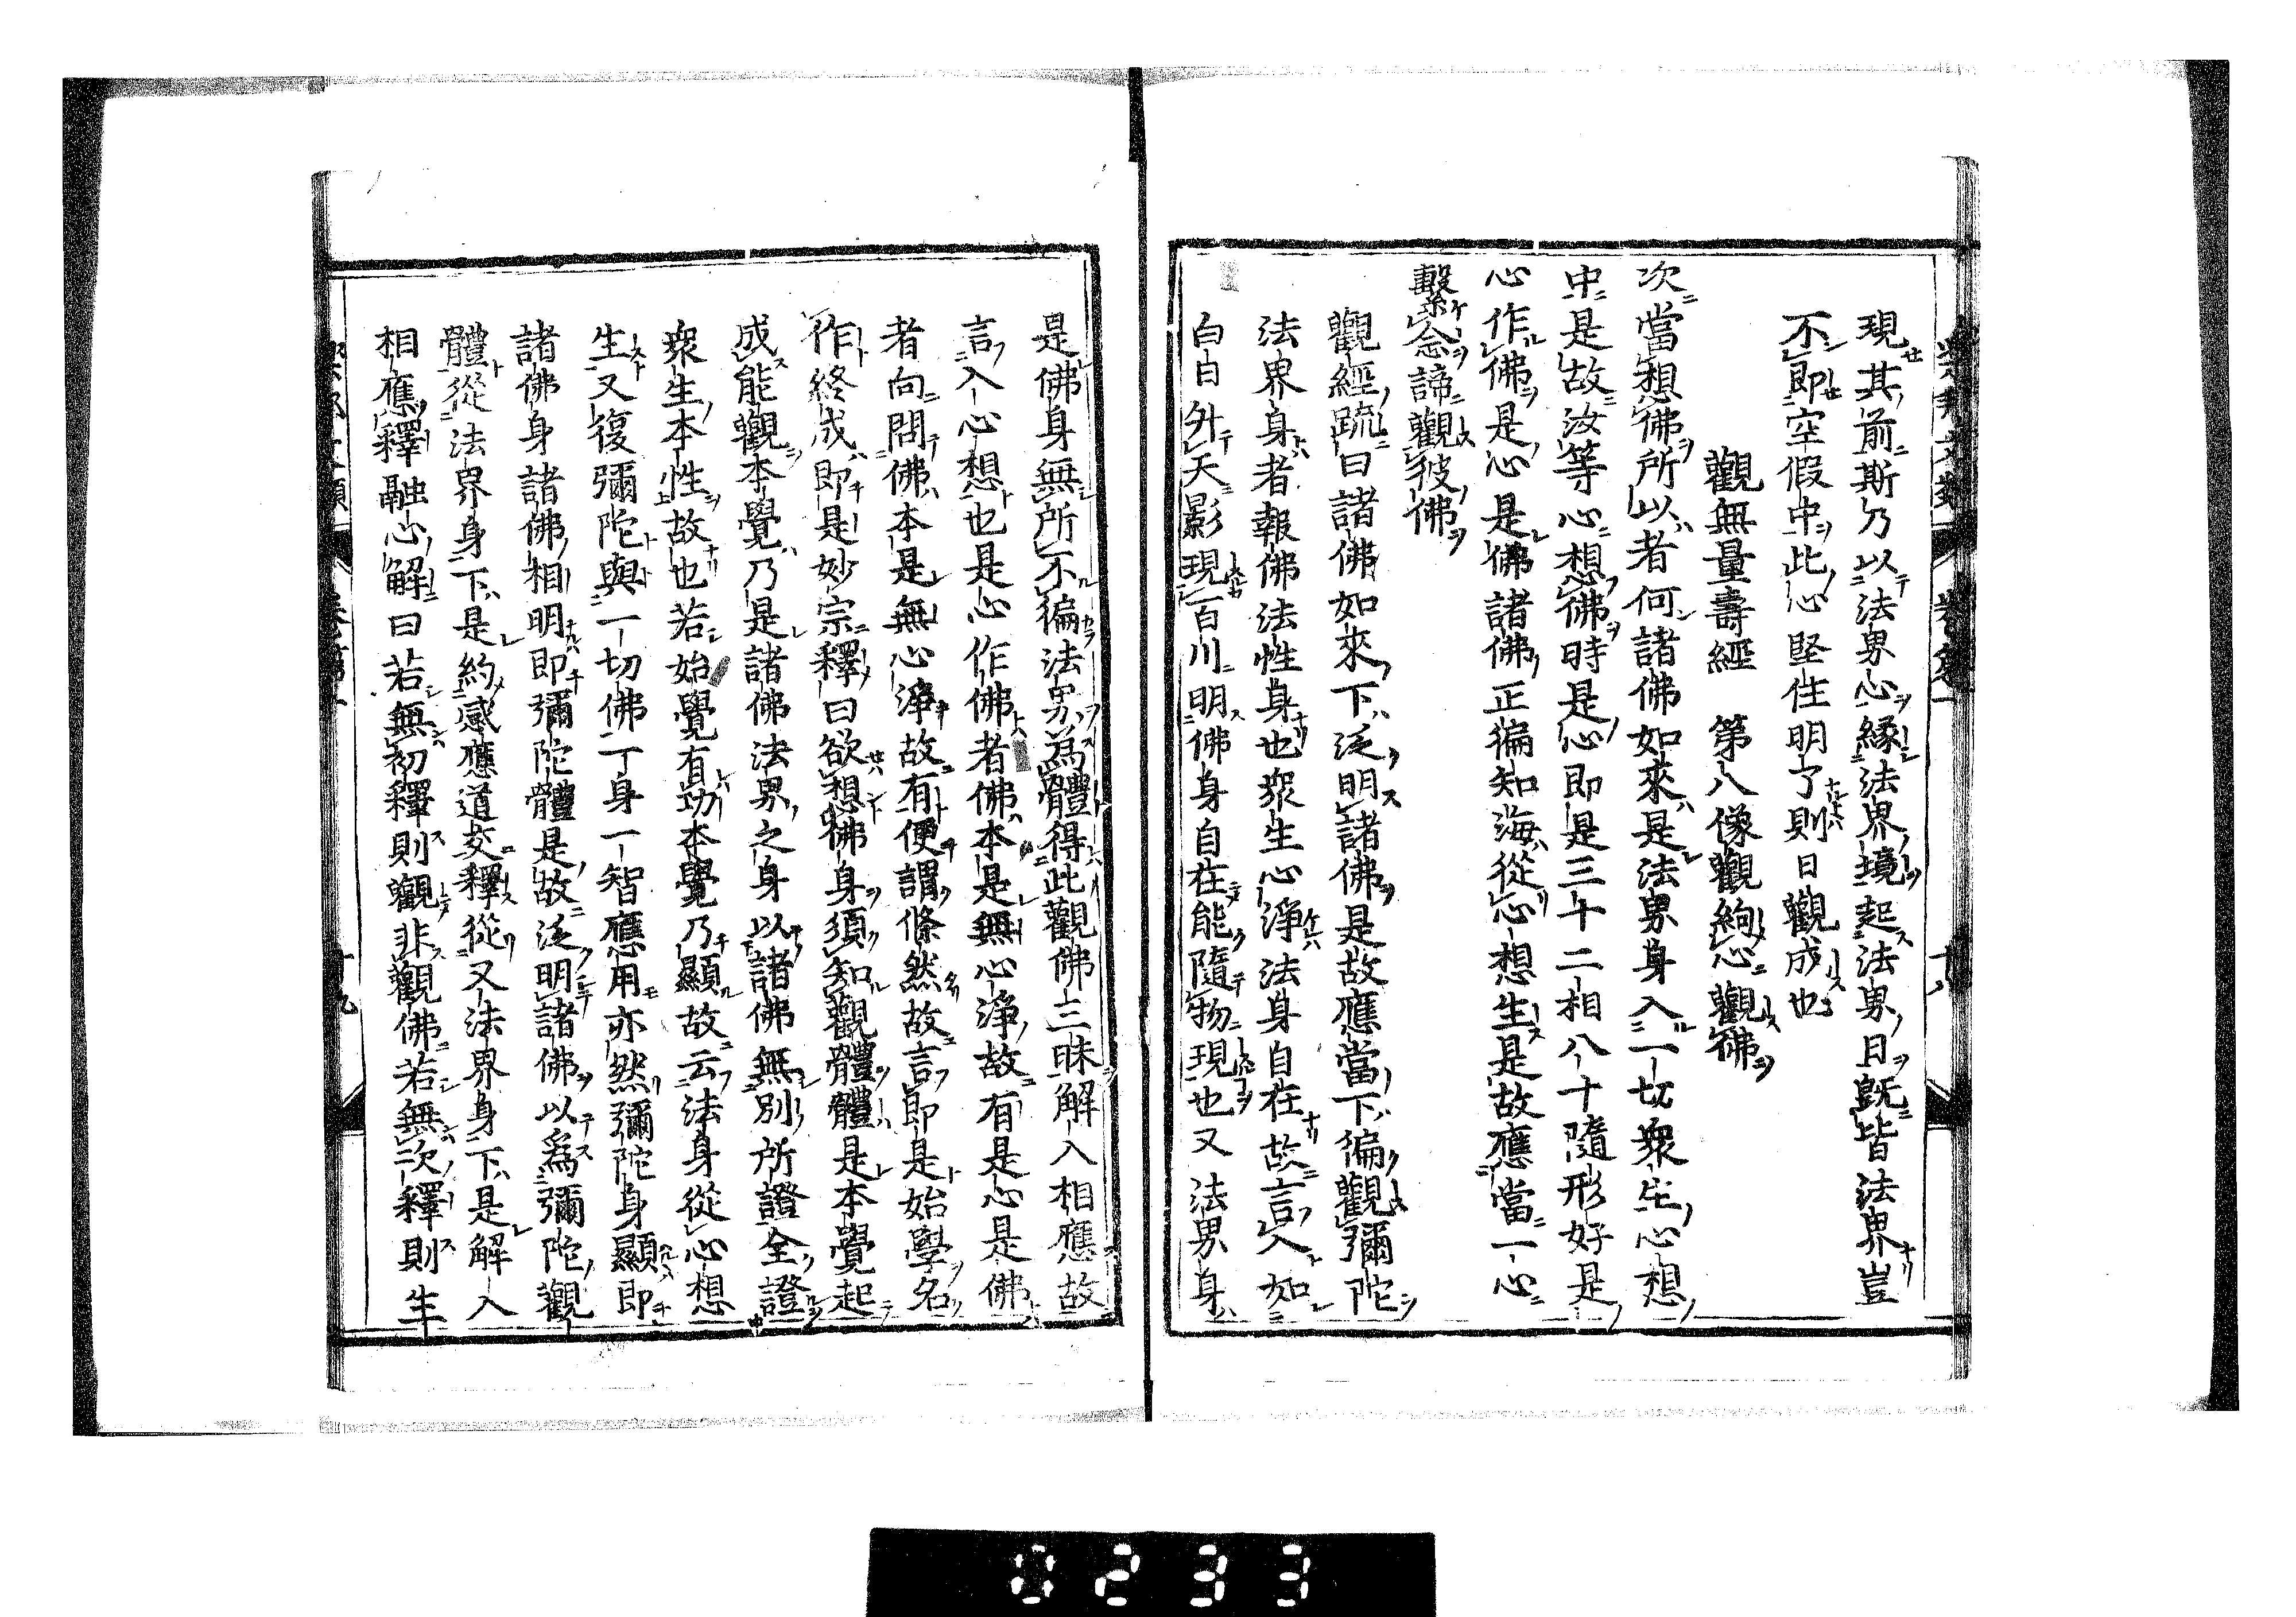 現其前斯乃以法界心緣法界境起法界日旣皆法界豈
不即空假中此心堅住明了則日觀成也
觀無量壽經　第八像觀絢心觀佛
次當想佛所以者何諸佛如來是法界身入一切衆生心想
中是故汝等心想佛時是心即是三十二相八十隨形好是
心作佛是心是佛諸佛正徧知海從心想生是故應當一心
繫念諦觀彼佛
觀經疏曰諸佛如來下泛明諸佛是故應當下徧觀彌陀
法界身者報佛法性身也衆生心淨法身自在故言入如
白日升天影現百川明佛身自在能隨物現也又法界身
是佛身無所不徧法界爲體得此觀佛三昧解入相應故
言入心想也是心作佛者佛本是無心淨故有是心是佛
者向聞佛本是無心淨故有便謂條然故言即是始學名
作終成即是妙宗釋曰欲想佛身須知觀體體是本覺起
成能觀本覺乃是諸佛法界之身以諸佛無別所證全證
衆生本性故也若始覺有功本覺乃顯故云法身從心想
生又復彌陀與一切佛一身一智應用亦然彌陀身顯即
諸佛身諸佛相明即彌陀體是故泛明諸佛以爲彌陀觀
體從法界身下是約感應道交釋從又法界身下是解入
相應釋融心解曰若無初釋則觀非觀佛若無次釋則生
十九
0233